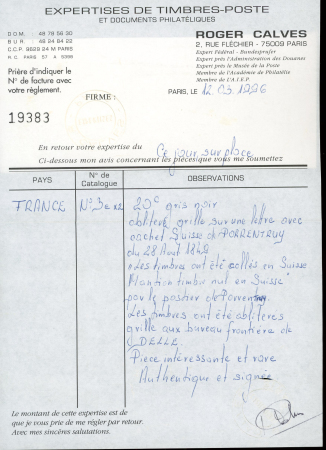 EXPERTISES DE TIMBRES-POSTE
ET DOCUMENTS PHILATÉLIQUES
DOM. 48 78 56 30
BUR. 48 24 84 22
C.C.P. 9639 24 M PARIS
R.C. PARIS 57 A 8398
ROGER CALVES
2, RUE FLÉCHIER - 75009 PARIS
Expert Fédéral - Bundesprufer
Expert près l'Administration des Douanes
Expert près le Musée de la Poste
Membre de l'Académie de Philatélie
Membre de l'A.I.E.P.
Prière d'indiquer le
N° de facture avec
votre règlement.
FIRME :
PARIS, le 12.03.1996
19383
En retour votre expertise du Ce jour sur place
Ci-dessous mon avis concernant les pièces que vous me soumettez
PAYS
N° de
Catalogue
OBSERVATIONS
FRANCE
N° 3 a x2
20c gris noir
oblitéré grille sur une lettre avec
cachet Suisse de PORRENTRUY
du 28 Aout 1849
"Les timbres ont été collés en Suisse
Mention timbre nul en Suisse"
pour le postier de Porrentruy.
Les timbres ont été oblitérés
grille aux bureau frontière de
DELLE
Pièce intéressante et rare
Authentique et signée
Le montant de cette expertise est de
que je vous prie de me régler par retour.
Avec mes sincères salutations.